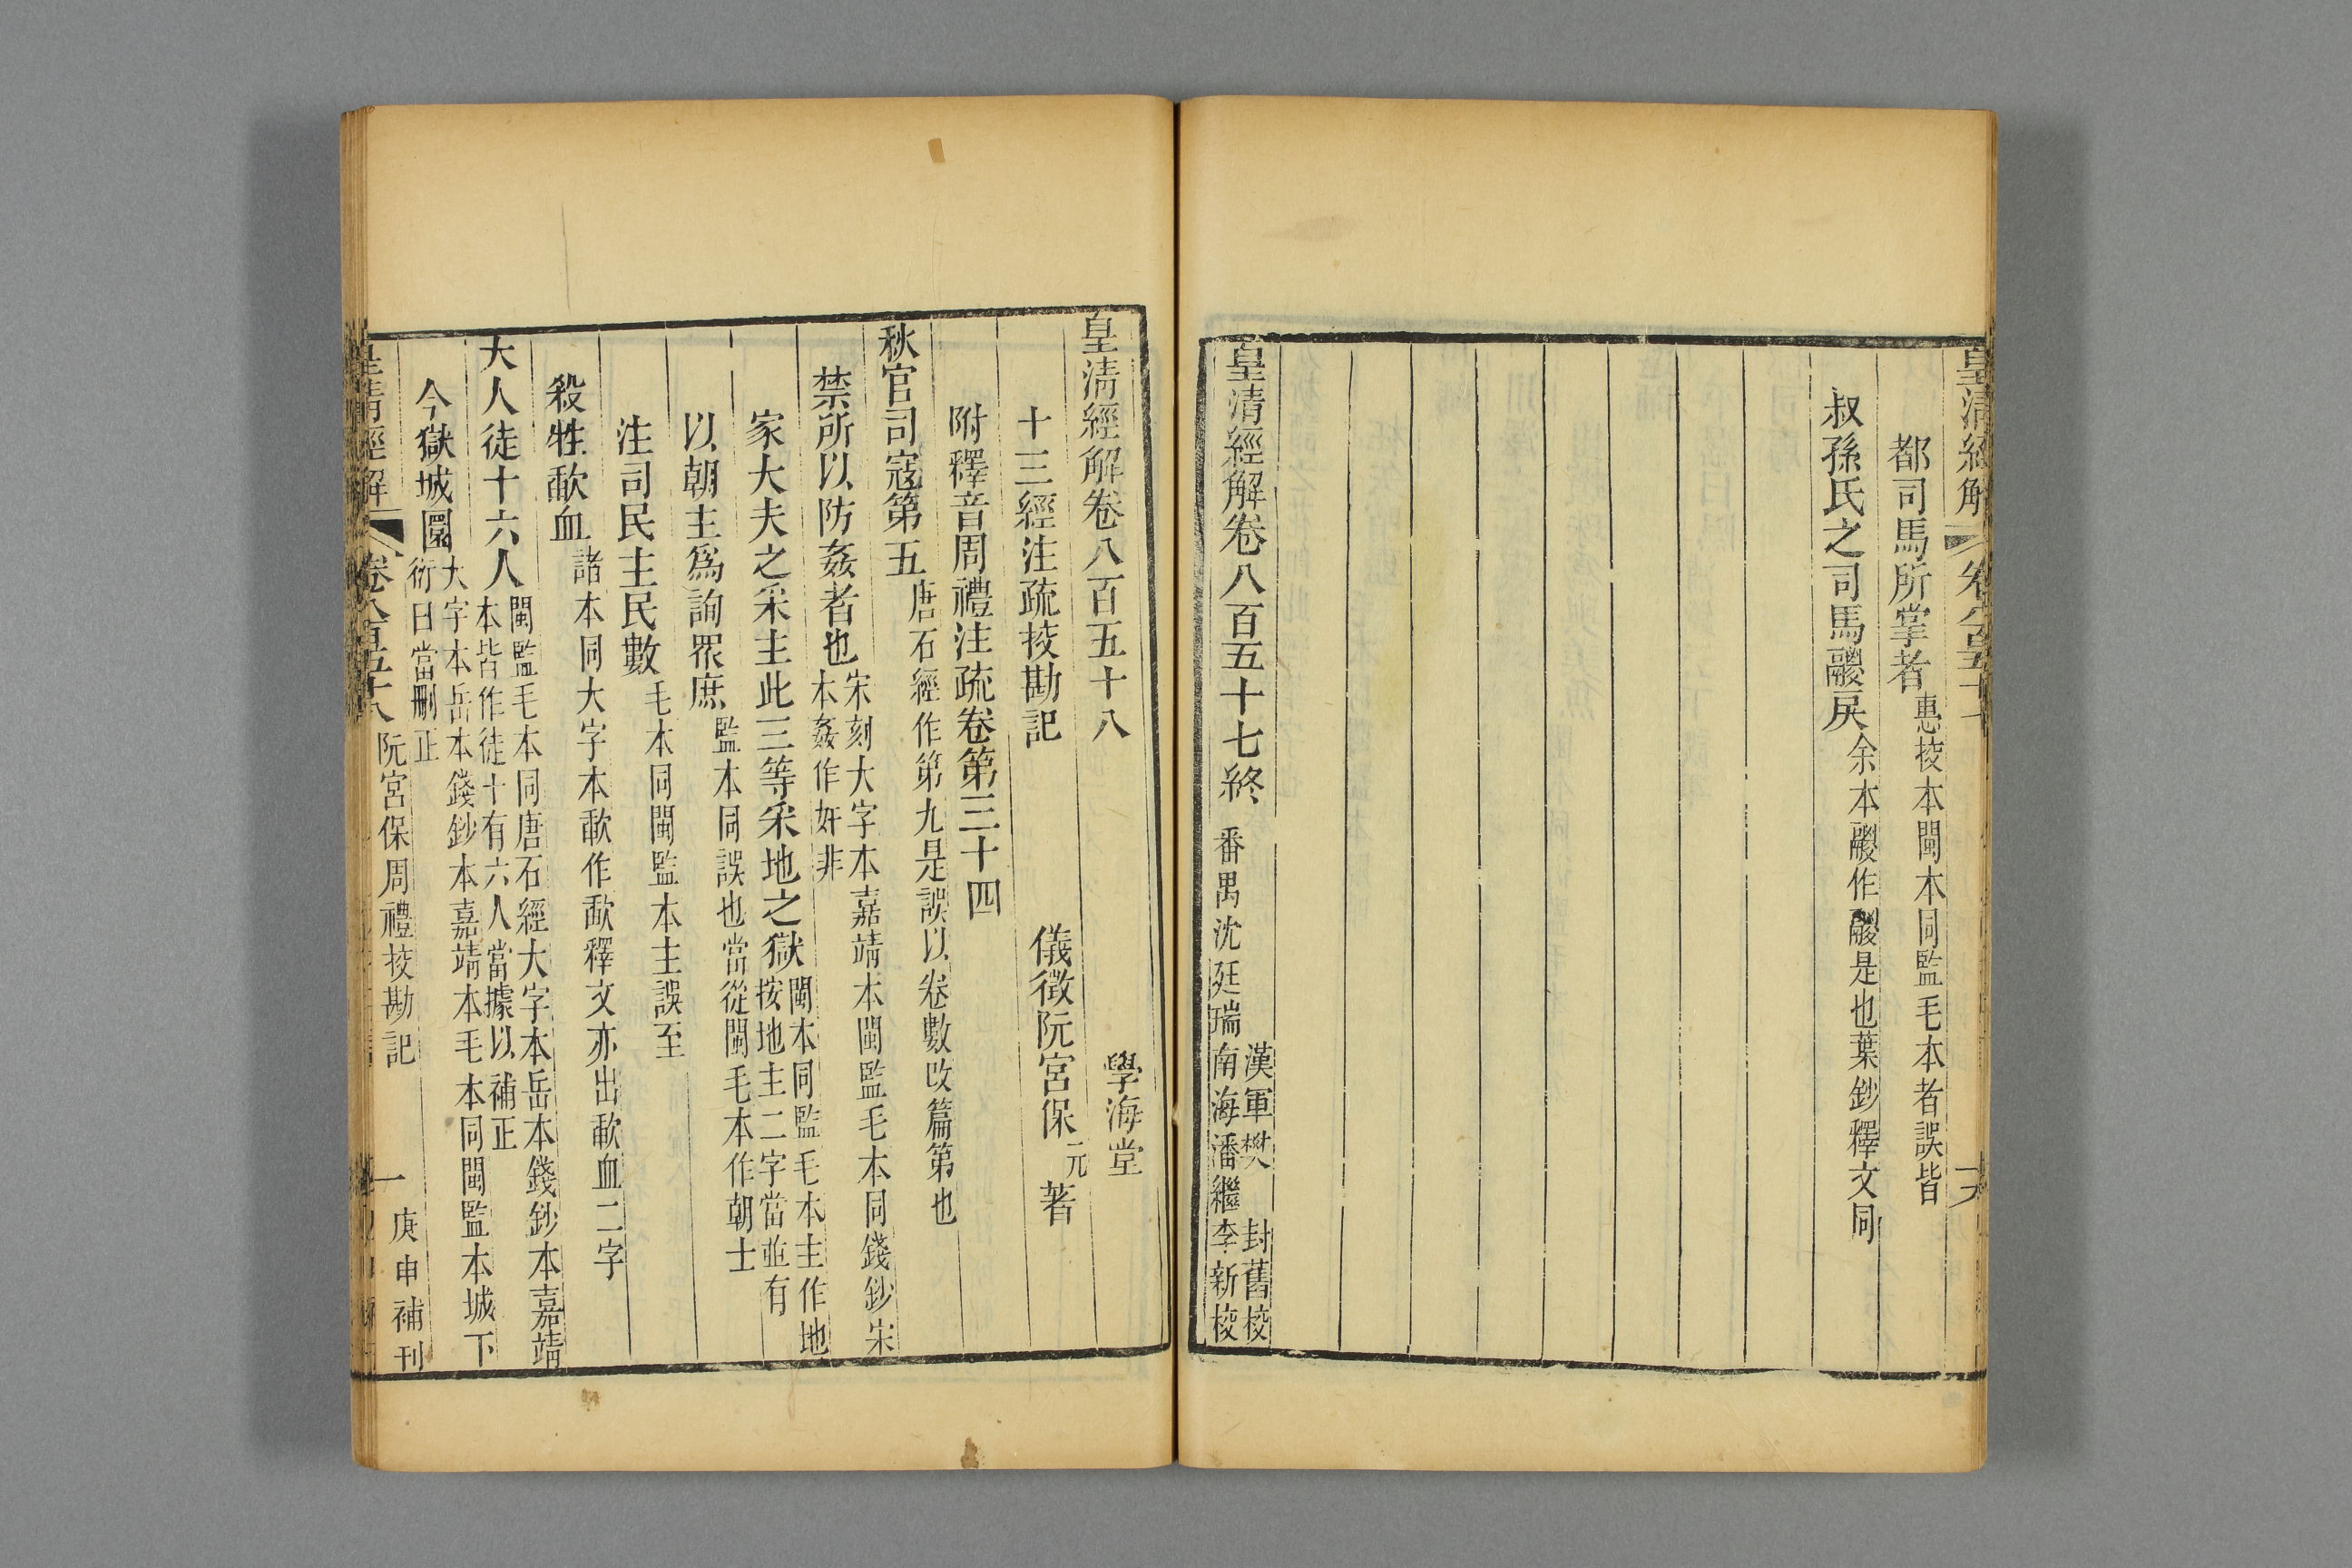 皇清經解 卷八百五十七 六
都司馬所掌者惠挍本閩本同監毛本者誤皆
叔孫氏之司馬鬷戾余本鬷作鬷是也葉鈔釋文同
皇清經解卷八百五十七終
漢軍樊封舊挍
番禺沈廷瑞南海潘繼李新挍
皇清經解卷八百五十八
學海堂
十三經注疏挍勘記
儀徵阮宮保元著
附釋音周禮注疏卷第三十四
秋官司寇第五唐石經作第九是誤以卷數改篇第也
禁所以防姦者也宋刻大字本嘉靖本閩監毛本同錢鈔宋
本姦作奸非
家大夫之采主此三等采地之獄閩本同監毛本主作地
按地主二字當並有
以朝主爲詢眾庶監本同誤也當從閩毛本作朝士
注司民主民數毛本同閩監本主誤至
殺牲歃血諸本同大字本歃作歃釋文亦出歃血二字
大人徒十六人閩監毛本同唐石經大字本岳本錢鈔本嘉靖
本皆作徒十有六人當據以補正
今獄城圜大字本岳本錢鈔本嘉靖本毛本同閩監本城下
衍曰當刪正
皇清經解 卷八百五十八 阮宮保周禮挍勘記 一 庚申補刊